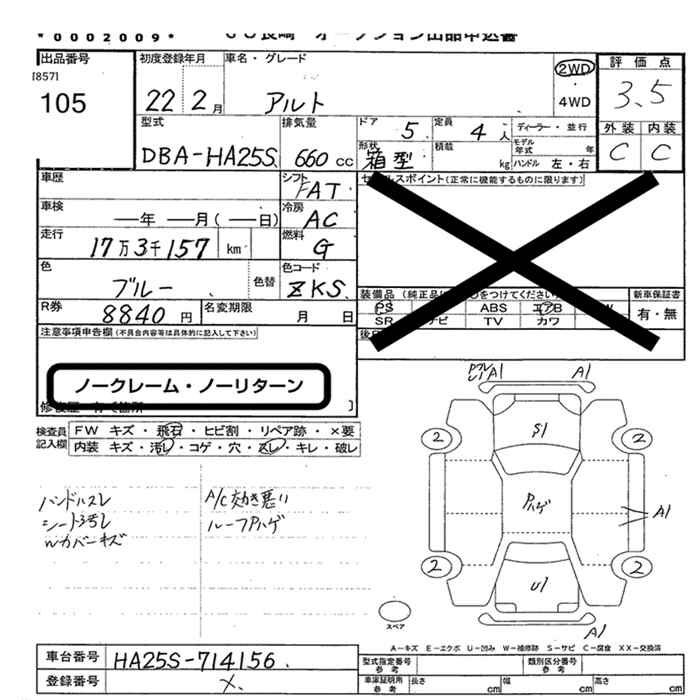 *0002009*
出品番号
[857]
105
初度登録年月
22 2月
車名・グレード
アルト
2WD
4WD
評価点
3.5
外装 内装
C C
型式
DBA-HA25S
排気量
660 cc
ドア
5
定員
4人
ディーラー・並行
形状
箱型
積載
kg
モデル年式
年
ハンドル 左・右
車歴
シフト
FAT
セールスポイント(正常に機能するものに限ります)
車検
―年 ―月(―日)
冷房
AC
走行
17万3千157 km
燃料
G
色
ブルー
色替
色コード
ZKS
装備品
新車保証書
有・無
PS
ABS
エアB
SR
ナビ
TV
カワ
R券
8840円
名変期限
月 日
注意事項申告欄(不具合内容等は具体的に記入して下さい)
ノークレーム・ノーリターン
検査員記入欄
FW キズ・飛石・ヒビ割・リペア跡・×要
内装 キズ・汚レ・コゲ・穴・スレ・キレ・破レ
ハンドルスレ
A/C効き悪い
ルーフPハゲ
Wカバーキズ
U1 A1
A1
S1
2
2
Pハゲ
A1
2
2
U1
A1
スペア
A-キズ E-エクボ U-凹み W-補修跡 S-サビ C-腐食 XX-交換済
車台番号
HA25S-714156
登録番号
×
型式指定番号
参考
類別区分番号
参考
車庫証明用
参考
長さ
cm
幅
cm
高さ
cm